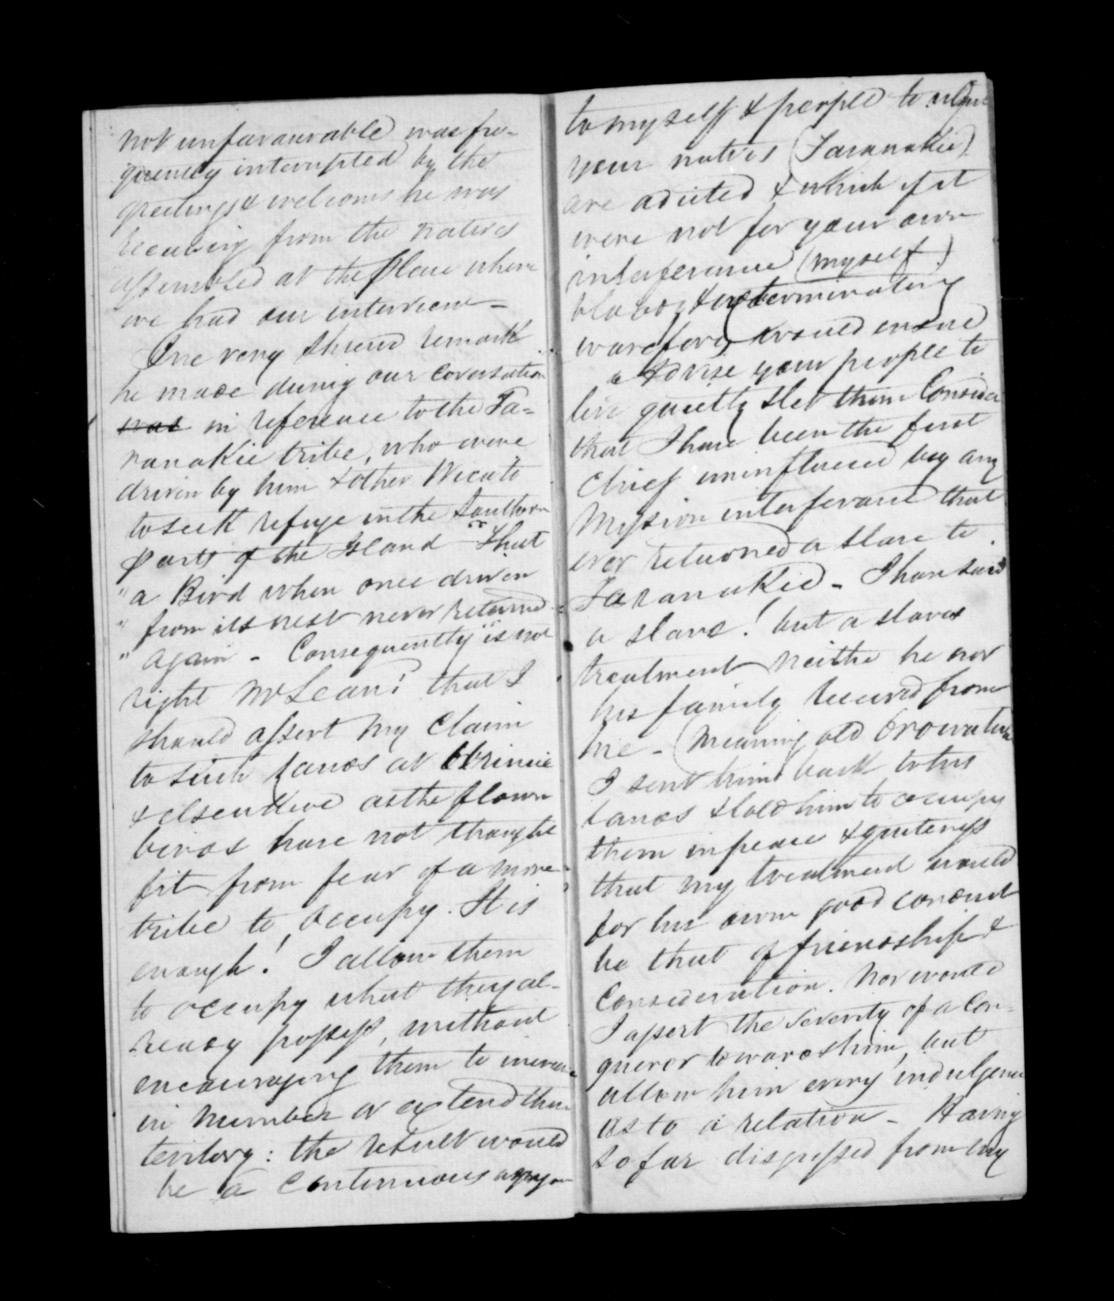 not unfavourable was fre-
quently interrupted by the
greetings & welcoms he was
receiving from the natives
assembled at the place where
we had our interview -
One very shreud remark
he made during our coversation
was in reference to the Ta-
ranakie tribe, who were
driven by him & other Wicato
to seek refuge in the Southern
parts of the Island "That
" a Bird when once driven
" from its nest never returned
" again - Consequently is not
right McLean? that I
should assert my claim
to such lands at
& elsewhere as the flown
birds have not thought
fit from fear of a more
tribe to occupy. It is
enough! I allow them
to occupy what they al-
ready possess, without
encouraging them to increase
in number or extend their
teritory: the result would
be a continuous
to myself & people to
your natives (Taranakie)
are adicted & which if it
were not for your own
interference (myself)
bloody & exterminating
warefore would ensue
advise your people to
live quietly & let them Consider
that I have been the first
Chief uninfluenced by any
Mission interferance that
ever returned a slave to
Taranakie - I have said
a slave! but a slaves
treatment neithe he nor
his family received from
me - (meaning old
I sent him back to his
lands & told him to occupy
them in peace & quiteness
that my treatment would
for his own good conduct
be that of friendship &
Consideration. Nor would
I assert the severity of a Con-
queror towards him, but
allow him every indulgence
as to a relation - Having
so far digressed from my